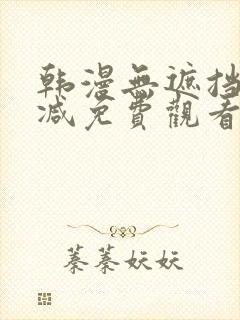 韩漫無遮挡
减免費觀看
蓁蓁妖妖